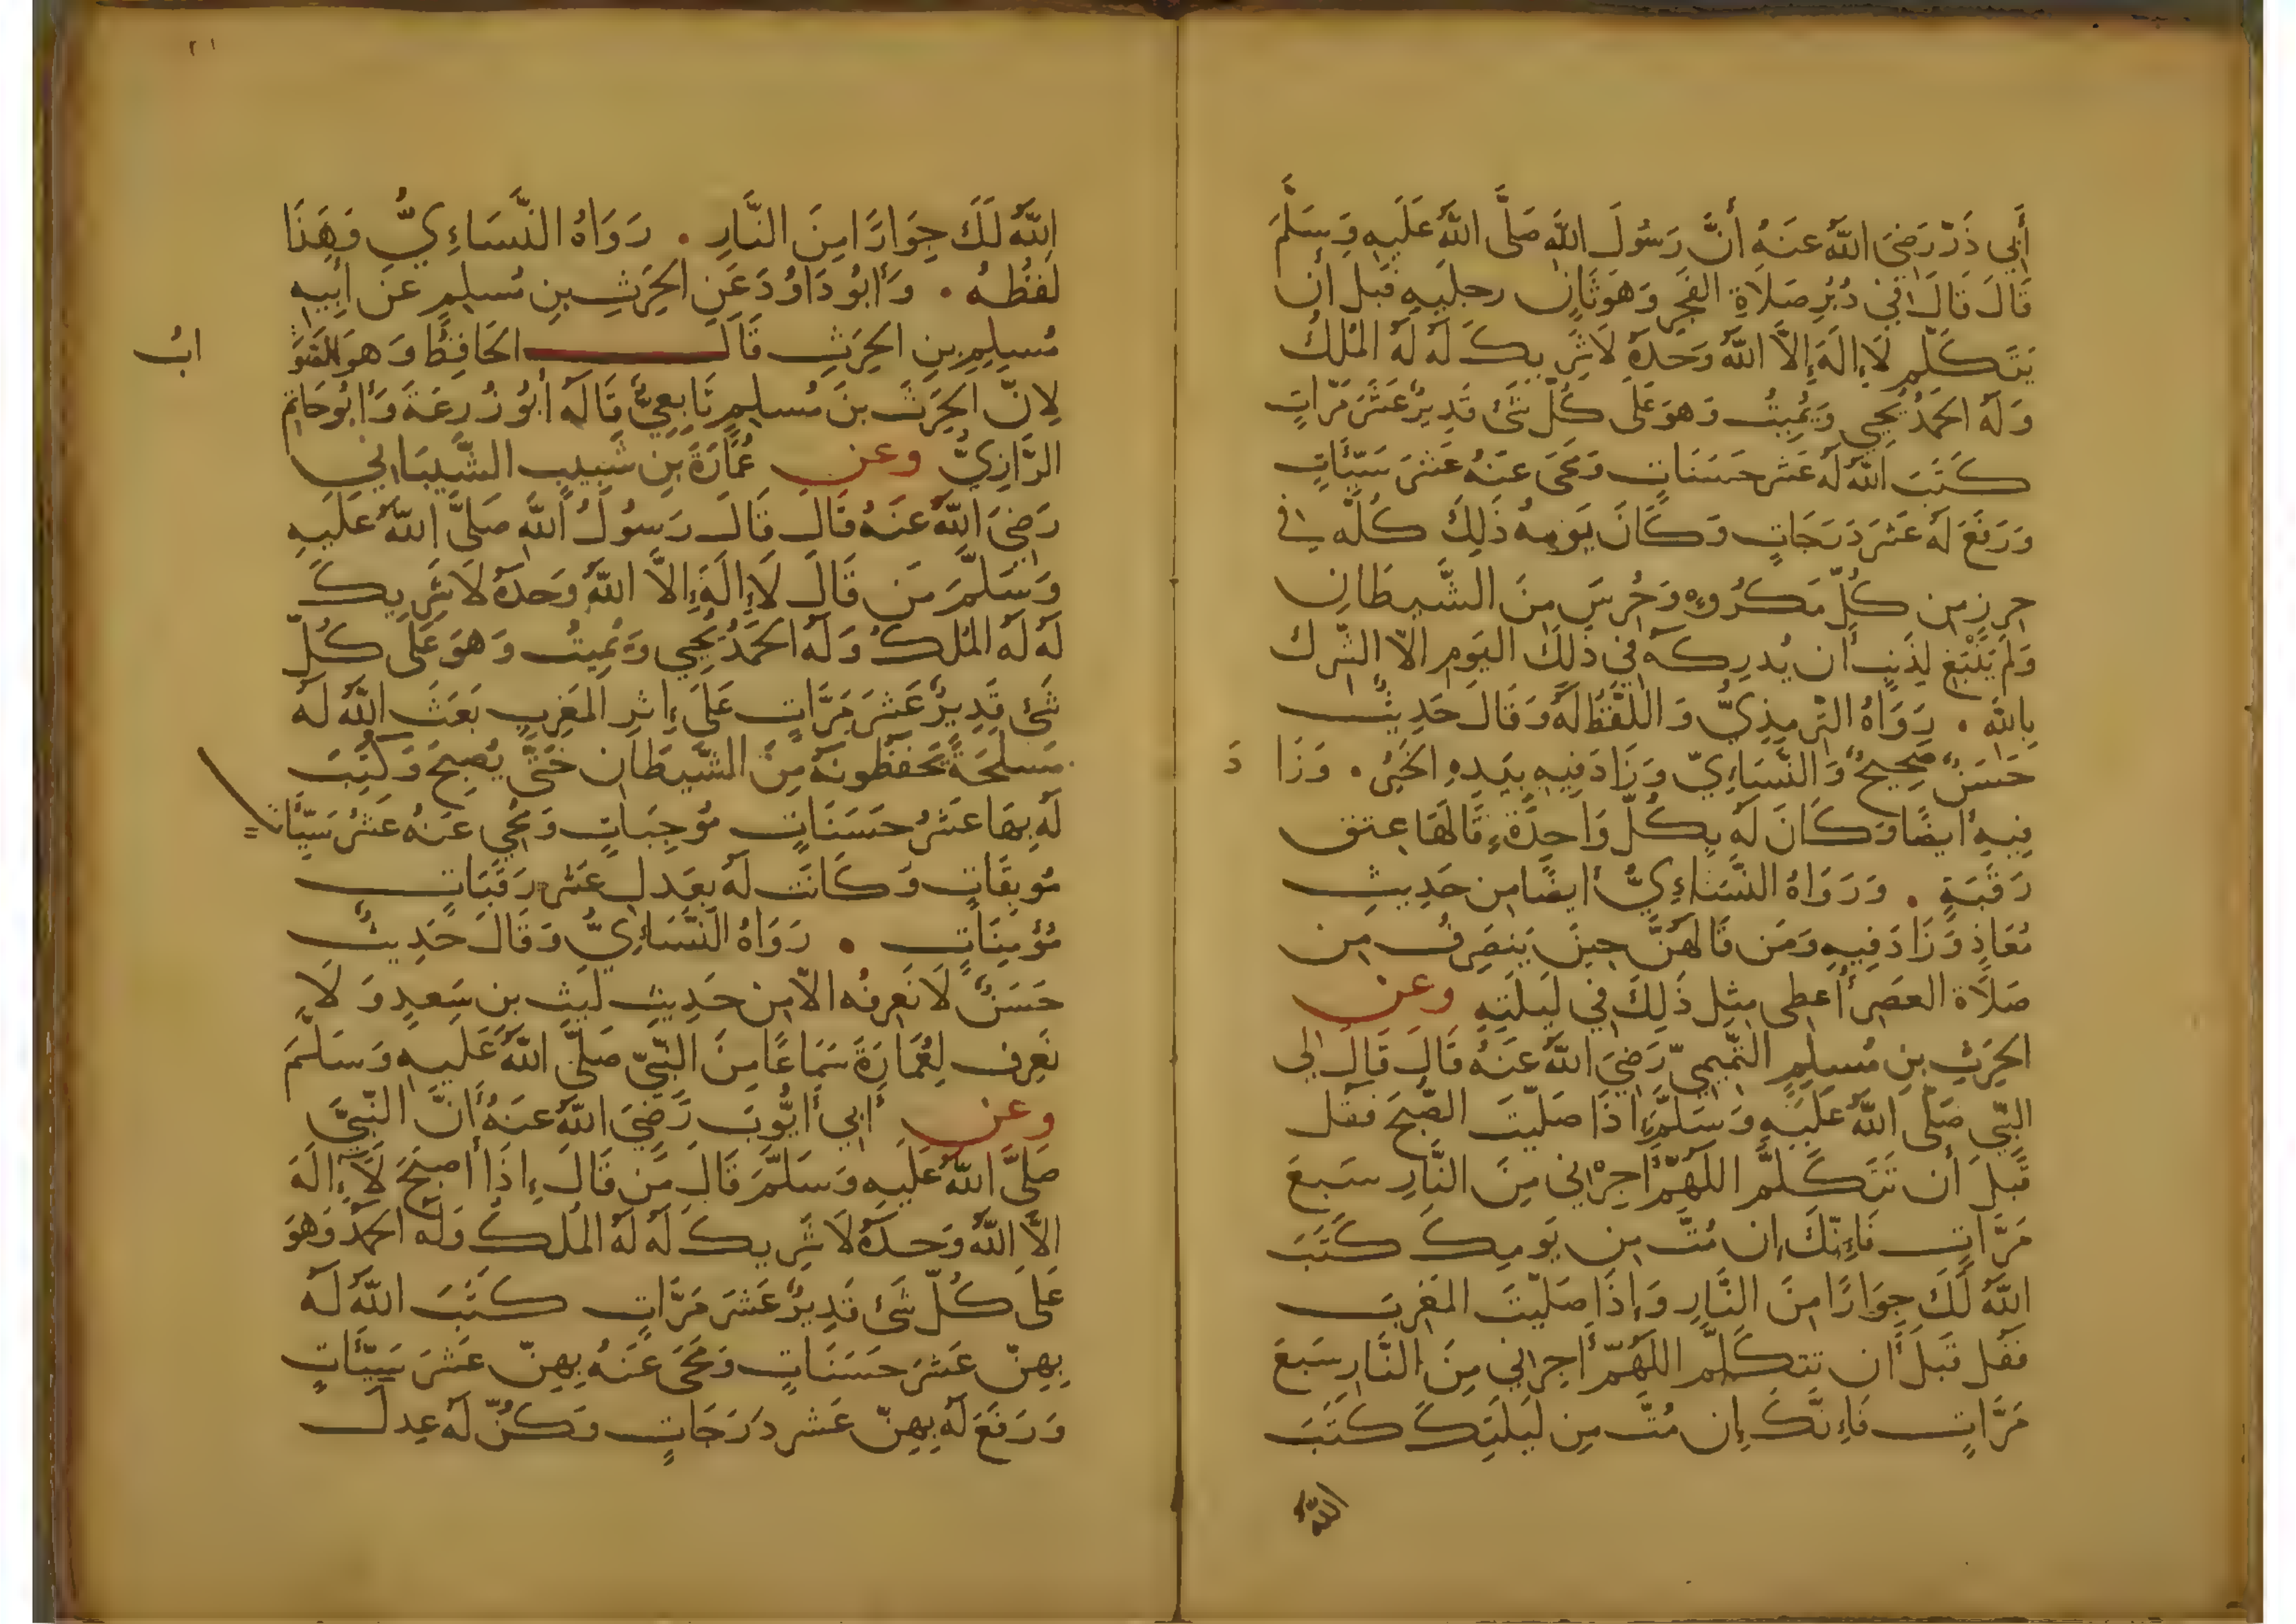 أَبِي ذَرّ رَضِيَ اللّٰهُ عَنهُ أَنَّ رَسُولَ اللّٰهِ صَلَّى اللّٰهُ عَلَيهِ وَسَلَّمَ
قَالَ قَالَ فِي دُبُرِ صَلَاةِ الفَجرِ وَهوَ ثَانٍ رجلَيهِ قَبلَ أن
يَتَكَلَّمِ لَاإِلَهَ إِلَّا اللّٰهُ وَحدَهُ لَاشَرِيكَ لَهُ لَهُ المُلكُ
وَلَهُ الحَمدُ يُحيِي وَيُمِيتُ وَهوَ عَلَى كُلّ شَئ قَدِيرٌ عَشَرَ مَرَّاتٍ
كَتَبَ اللّٰهُ لَهُ عَشرَ حَسَنَاتٍ وَمَحَى عَنهُ عَشرَ سَيِّئَاتٍ
وَرَفَعَ لَهُ عَشرَ دَرَجَاتٍ وَكَانَ يَومهُ ذَلِكَ كُلَّه فِي
حِرزٍ مِن كُلِّ مَكرُوهٍ وَحُرِسَ مِنَ الشَّيطَانِ
وَلَم يَنْبَغِ لِذَنبٍ أن يُدرِكَه فِي ذَلِكَ اليَومِ الَّا الشّرك
بِاللّٰهِ . رَوَاهُ التِّرمِذِيُّ وَاللَّفظُ لَهُ وَقَالَ حَدِيثٌ
حَسَنٌ صَحِيحٌ وَالنَّسَاءِيّ وَزَادَ فِيهِ بِيَدِهِ الخَيرُ . وَزَا دَ
فِيهِ أيضًا وَكَانَ لَهُ بِكُلّ وَاحِدَةٍ قَالَهَا عِتق
رَقَبَةٍ . وَرَوَاهُ النَّسَاءِيُّ أيضًا مِن حَدِيثِ
مُعَاذٍ وَزَادَ فِيهِ وَمَن قَالَهُنَّ حِينَ يَنصَرِفُ مِن
صَلَاة العَصرِ أعطِى مِثل ذَلِكَ فِي لَيلَتِهِ وعن
الحَرِثِ بنِ مُسلِمٍ التَّمِيمِيّ رَضِيَ اللّٰهُ عَنهُ قَالَ قَالَ لِي
النَّبِيّ صَلَّى اللّٰهُ عَلَيهِ وَسَلَّمَ إِذَا صَلَّيتَ الصُّبحَ فَقُل
قَبلَ أن تَتَكَلَّمَ اللَّهُمَّ أَجِرْنِي مِنَ النَّارِ سَبعَ
مَرَّاتٍ فَاءِنَّكَ إِن مُتَّ مِن يَومِكَ كَتَبَ
اللّٰهُ لَكَ جِوَارًا مِنَ النَّارِ وَإِذَا صَلَّيتَ المَغرِبَ
فَقُل قَبلَ أن تَتَكَلَّم اللَّهُمَّ أجِرنِي مِنَ النَّارِ سَبعَ
مَرَّاتٍ فَاءِنَّكَ إِن مُتَّ مِن لَيلَتِكَ كَتَبَ
اللّٰهُ
٢١
اللّٰهُ لَكَ جِوَارًا مِنَ النَّارِ . رَوَاهُ النَّسَاءِيُّ وَهَذَا
لَفظُهُ . وَأَبُو دَاوُدَ عَنِ الحَرِثِ بنِ مُسلِمٍ عَن أَبِيهِ
مُسلِمِ بنِ الحَرِثِ قَالَ الحَافِظُ وَهوَ الصَّوَا ابُ
لِانَّ الحَرِثَ بنَ مُسلِمٍ تَابِعِيٌّ قَالَهُ أَبُو زُرعَةَ وَأَبُو حَاتِم
الرَّازِيُّ وعن عُمَارَةَ بنِ شَبِيبٍ الشَّيبَانِي
رَضِيَ اللّٰهُ عَنهُ قَالَ قَالَ رَسُولُ اللّٰهِ صَلَّى اللّٰهُ عَلَيهِ
وَسَلَّمَ مَن قَالَ لَاإِلَهَ إِلَّا اللّٰهُ وَحدَهُ لَاشَرِيكَ
لَهُ لَهُ المُلكُ وَلَهُ الحَمدُ يُحيِي وَيُمِيتُ وَهوَ عَلَى كُلّ
شَئ قَدِيرٌ عَشرَ مَرَّاتٍ عَلَى إِثرِ المَغرِبِ بَعَثَ اللّٰهُ لَهُ
مَسلَحَةً تَحفَظُونَهُ مِنَ الشَّيطَانِ حَتَّى يُصبِحَ وَكُتِبَ
لَهُ بِهَا عَشرُ حَسَنَاتٍ مُوجِبَاتٍ وَمُحِيَ عَنهُ عَشرُ سَيِّئَاتٍ
مُوبِقَاتٍ وَكَانَت لَهُ بِعَدلِ عَشرِ رَقَبَاتٍ
مُؤمِنَاتٍ . رَوَاهُ النَّسَاءِيُّ وَقَالَ حَدِيثٌ
حَسَنٌ لَا نَعرِفُه الَّا مِن حَدِيثِ لَيثِ بنِ سَعِيدٍ وَلَا
نَعرِف لِعُمَارَةَ سَمَاعًا مِنَ النَّبِيّ صَلَّى اللّٰهُ عَلَيهِ وَسَلَّمَ
وعن أبي أَيُّوبَ رَضِيَ اللّٰهُ عَنهُ أَنَّ النَّبِيَّ
صَلَّى اللّٰهُ عَلَيهِ وَسَلَّمَ قَالَ مَن قَالَ إِذَا أصبَحَ لَاإِلَهَ
الَّا اللّٰهُ وَحدَهُ لَا شَرِيكَ لَهُ لَهُ المُلكُ وَلَهُ الحَمدُ وَهوَ
عَلَى كُلّ شَئ قَدِيرٌ عَشرَ مَرَّاتٍ كَتَبَ اللّٰهُ لَهُ
بِهِنّ عَشرَ حَسَنَاتٍ وَمَحَى عَنهُ بِهِنّ عَشرَ سَيِّئَاتٍ
وَرَفَعَ لَهُ بِهِنّ عَشر دَرَجَاتٍ وَكُنّ لَهُ عِدلَ